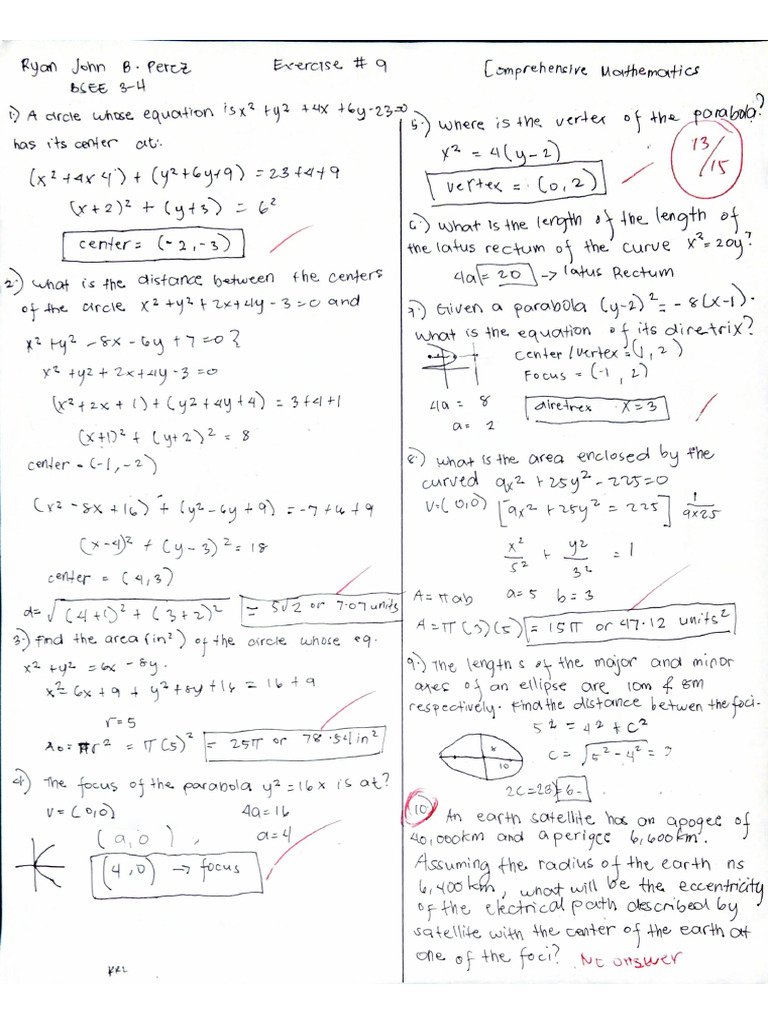 Ryan John B. Perez
Exercise # 9
Comprehensive Mathematics
BSEE 3-4
1.) A circle whose equation is x² + y² + 4x + 6y - 23 = 0
has its center at:
(x² + 4x 4) + (y² + 6y + 9) = 23 + 4 + 9
(x + 2)² + (y + 3) = 6²
center = (-2, -3)
2.) what is the distance between the centers
of the circle x² + y² + 2x + 4y - 3 = 0 and
x² + y² - 8x - 6y + 7 = 0 }
x² + y² + 2x + 4y - 3 = 0
(x² + 2x + 1) + (y² + 4y + 4) = 3 + 4 + 1
(x + 1)² + (y + 2)² = 8
center = (-1, -2)
(x² - 8x + 16) + (y² - 6y + 9) = -7 + 16 + 9
(x - 4)² + (y - 3)² = 18
center = (4, 3)
d = √(4 + 1)² + (3 + 2)² = 5√2 or 7.07 units
3.) Find the area (in²) of the circle whose eq.
x² + y² = 6x - 8y.
x² - 6x + 9 + y² + 8y + 16 = 16 + 9
r = 5
πr² = π(5)² = 25π or 78.54 in²
4.) The focus of the parabola y² = 16x is at?
v = (0, 0) 4a = 16
(a, 0), a = 4
(4, 0) → focus
5.) where is the vertex of the parabola?
x² = 4(y - 2)
13/15
vertex = (0, 2)
6.) What is the length of the length of
the latus rectum of the curve x² = 20y?
4a = 20 → latus Rectum
7.) Given a parabola (y - 2)² = -8(x - 1).
what is the equation of its diretrix?
center/vertex = (1, 2)
Focus = (-1, 2)
4a = 8
diretrex x = 3
a = 2
8.) what is the area enclosed by the
curved 9x² + 25y² - 225 = 0
v = (0, 0) [9x² + 25y² = 225] 1/9x25
x²/5² + y²/3² = 1
A = πab a = 5 b = 3
A = π(3)(5) = 15π or 47.12 units²
9.) The length s of the major and minor
axes of an ellipse are 10m & 8m
respectively. Find the distance betwen the foci.
5² = 4² + c²
8
10
c = √5² - 4² = 3
2C = 2(3) = 6
10. An earth satellite has an apogee of
40,000km and a perigee 6,600km.
Assuming the radius of the earth ns
6,400km, what will be the eccentricity
of the electrical path described by
satellite with the center of the earth at
one of the foci? No answer